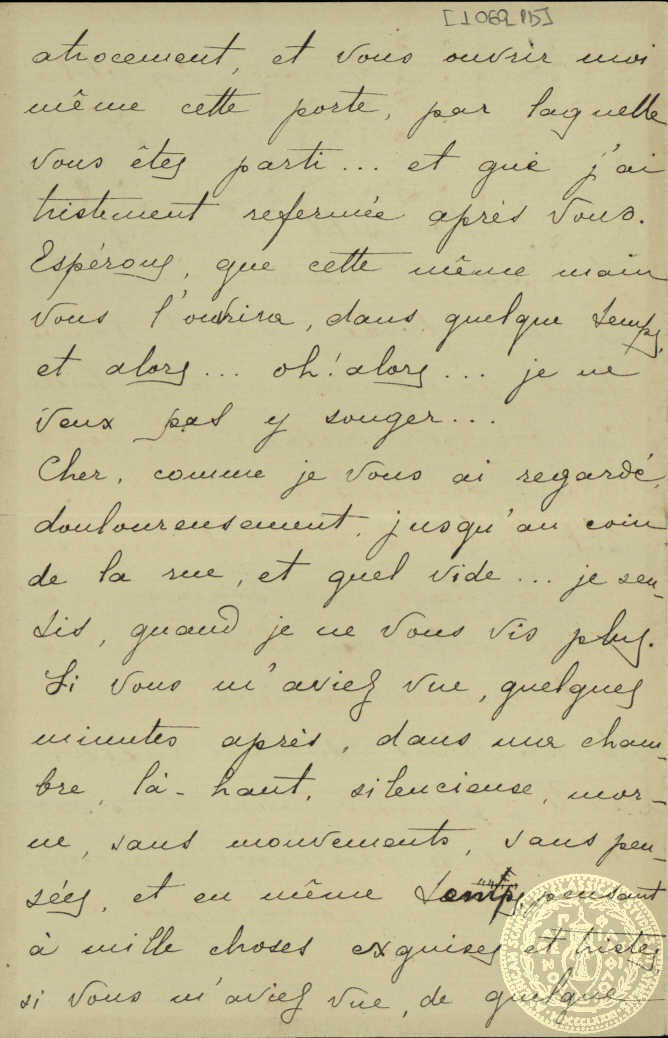 [1069 15]
atrocement, et vous ouvrir moi
même cette porte, par laquelle
vous êtes parti... et que j'ai
tristement refermée après vous.
Espérons, que cette même main
vous l'ouvrira, dans quelque temps,
et alors... oh! alors... je ne
veux pas y songer...
Cher, comme je vous ai regardé,
douloureusement, jusqu'au coin
de la rue, et quel vide... je sen-
tis, quand je ne vous vis plus.
Si vous m'aviez vue, quelques
minutes après, dans ma cham-
bre, là-haut, silencieuse, mor-
ne, sans mouvements, sans pen-
sées, et en même temps, pensant
à mille choses exquises et tristes
si vous m'aviez vue, de quelque